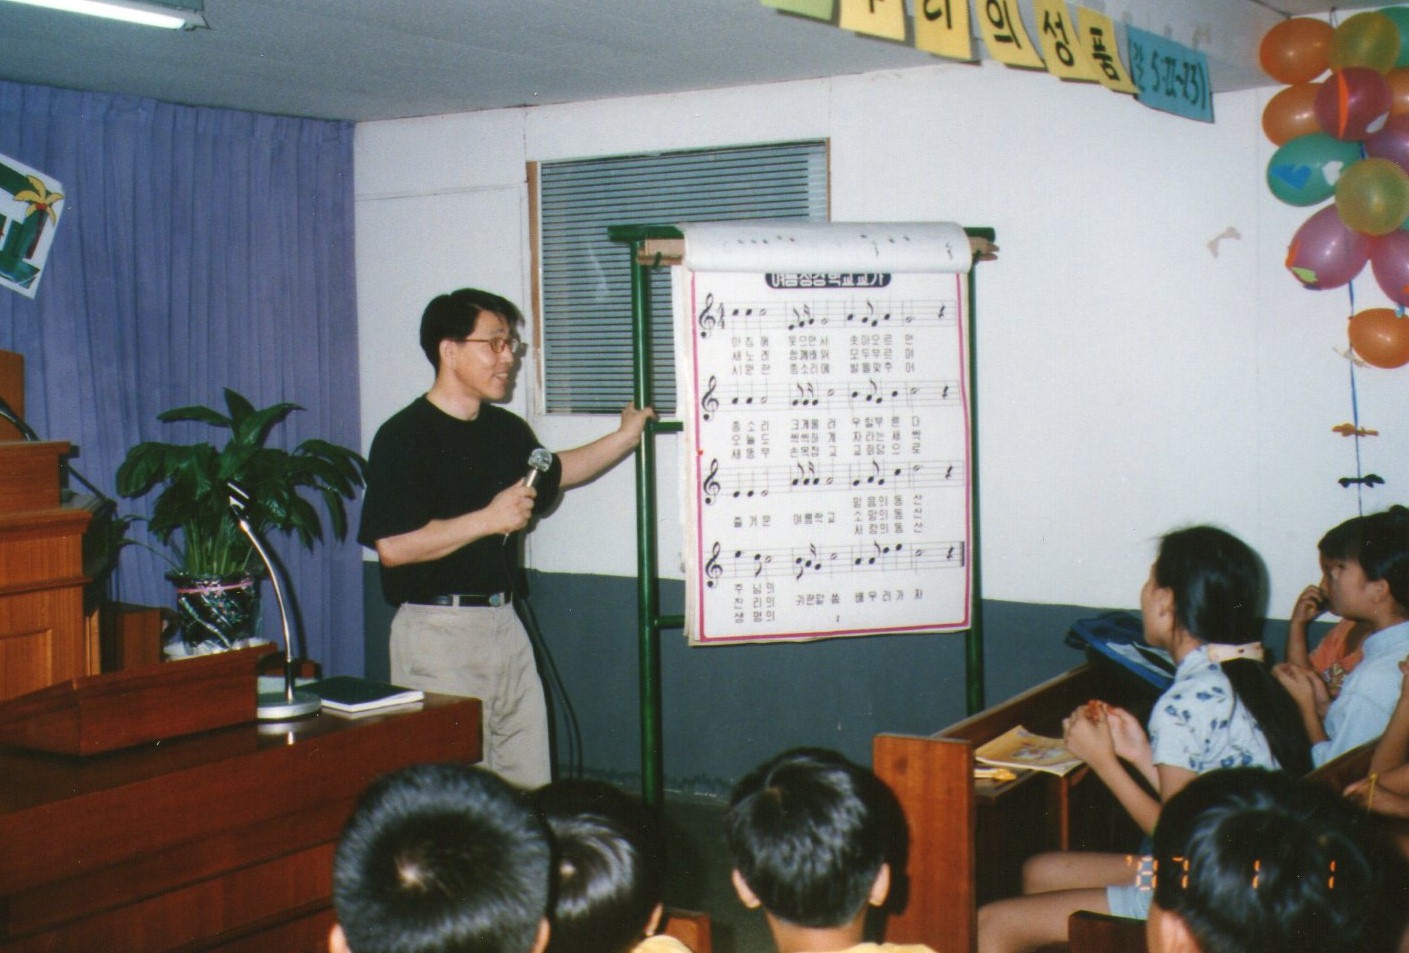 우리의성품
(갈 5:22~23)
여름성경학교교가
아침해 웃으면서 솟아오르면
새노래 함께배워 모두부르며
시원한 종소리에 발을맞추어
종소리 크게울려 우릴부른다
오늘도 씩씩하게 자라는새싹
새동무 손목잡고 교회당으로
믿음의동산
즐거운 여름학교 소망의동산
사랑의동산
주님의
진리의 귀한말씀 배우러가자
생명의
1
'87 1 1